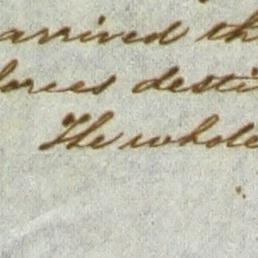 arrived th
forces desti
The whole